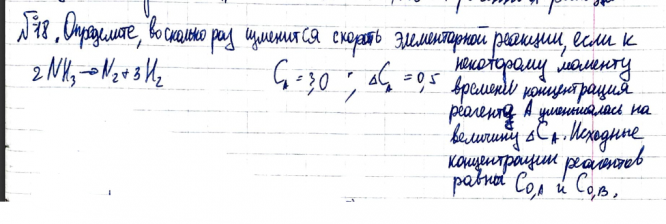 №18. Определите, во сколько раз изменится скорость элементарной реакции, если к
некоторому моменту
2NH₃→N₂+3H₂ C_A = 3,0 ; ΔC_A = 0,5
времени концентрация
реагента A уменьшалась на
величину ΔC_A. Исходные
концентрации реагентов
равны C₀,A и C₀,B.